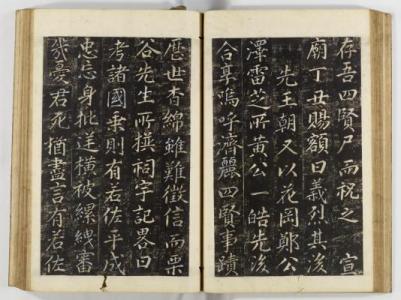 存吾四賢尸而祝之　宣
廟丁丑賜額曰義烈其後
先王朝又以花岡鄭公
澤雷芝所黃公一皓先後
合享嗚呼濟麗四賢事蹟
歷世杳綿雖難徵信而栗
谷先生所撰祠宇記畧曰
考諸國乘則有若佐平成
忠忘身批逆橫被縲絏審
幾憂君死猶盡言有若佐